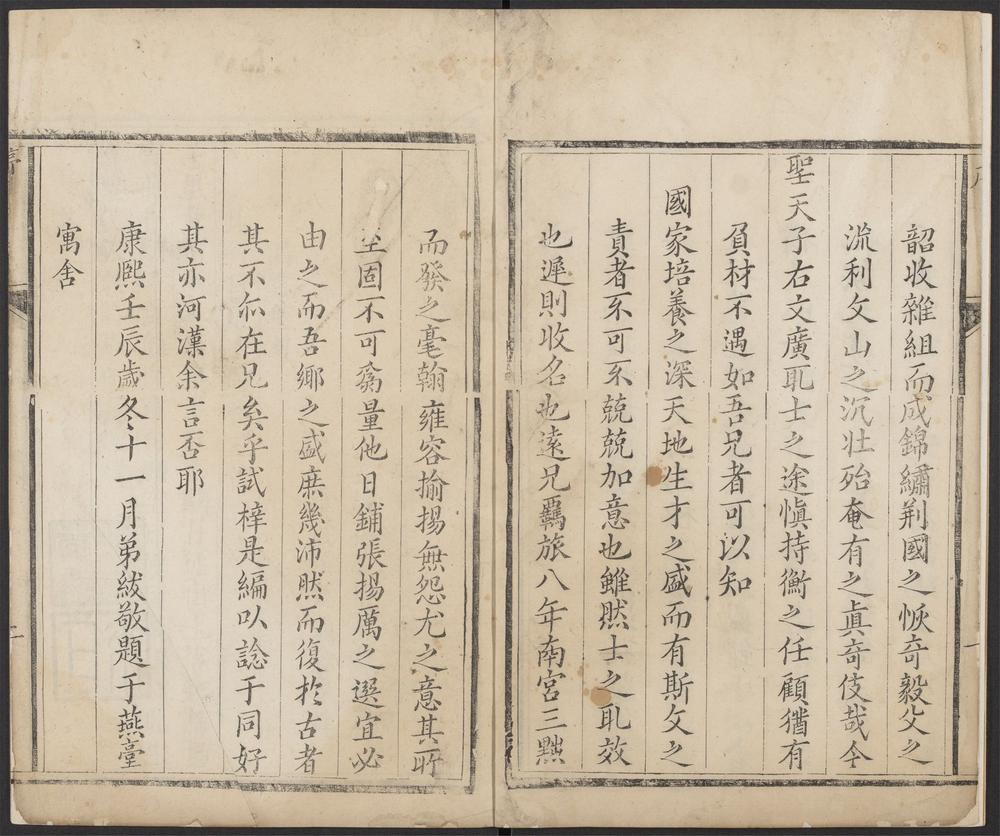 韶收雜組而成錦繡荆國之恢奇毅父之
流利文山之沉壯殆奄有之眞奇伎哉今
聖天子右文廣厎士之途愼持衡之任顧猶有
負材不遇如吾兄者可以知
國家培養之深天地生才之盛而有斯文之
責者不可不兢兢加意也雖然士之厎效
也遲則收名也遠兄羈旅八年南宮三黜
而發之毫翰雍容揄揚無怨尤之意其所
至固不可爲量他日鋪張揚厲之選宜必
由之而吾鄉之盛庶幾沛然而復於古者
其不尒在兄矣乎試梓是編以諗于同好
其亦河漢余言否耶
康熙壬辰歲冬十一月弟紱敬題于燕臺
寓舍
序
二
一